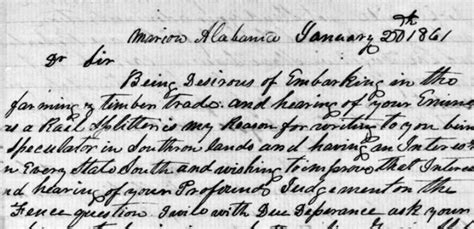 Marion Alabama January 20th 1861
Dr Sir
Being Desirous of Embarking in the
farming & timber Trade and hearing of your Emin
as a Rail Splitter is my Reason for writing to you bein
Speculator in Southron lands and having an Interest
in Every State South and wishing to improve that Interes
nd hearing of your Profound Judgement on the
Fence question I will with Due Deferance ask your